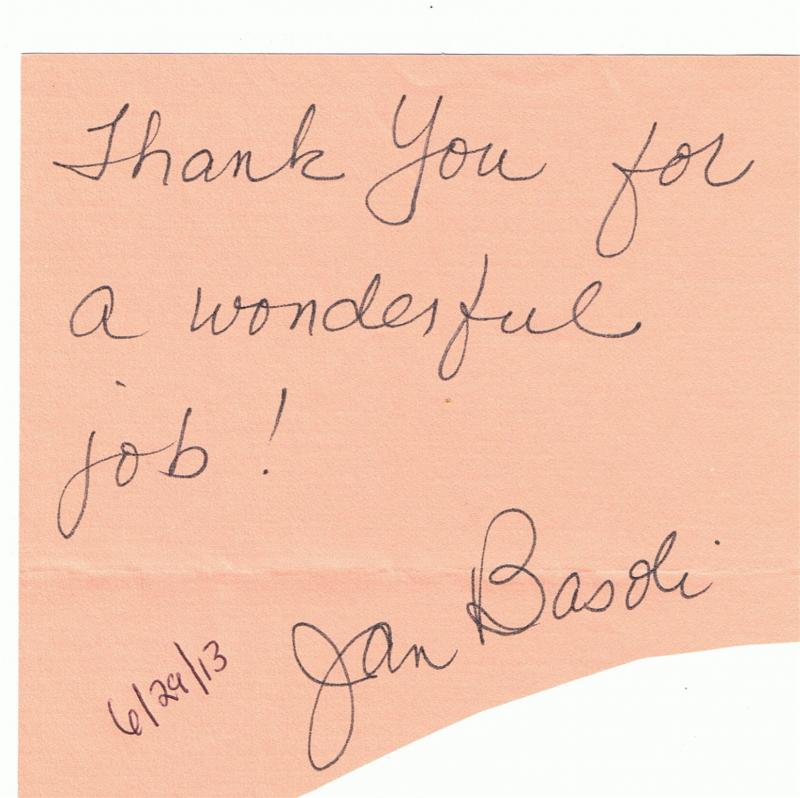 Thank You for
a wonderful
job!
Jan Basoli
6/29/13